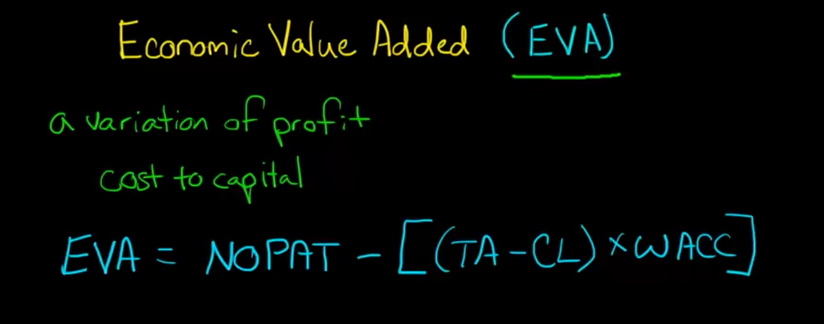 Economic Value Added (EVA)
a variation of profit
cost to capital
EVA = NOPAT - [(TA-CL) × WACC]